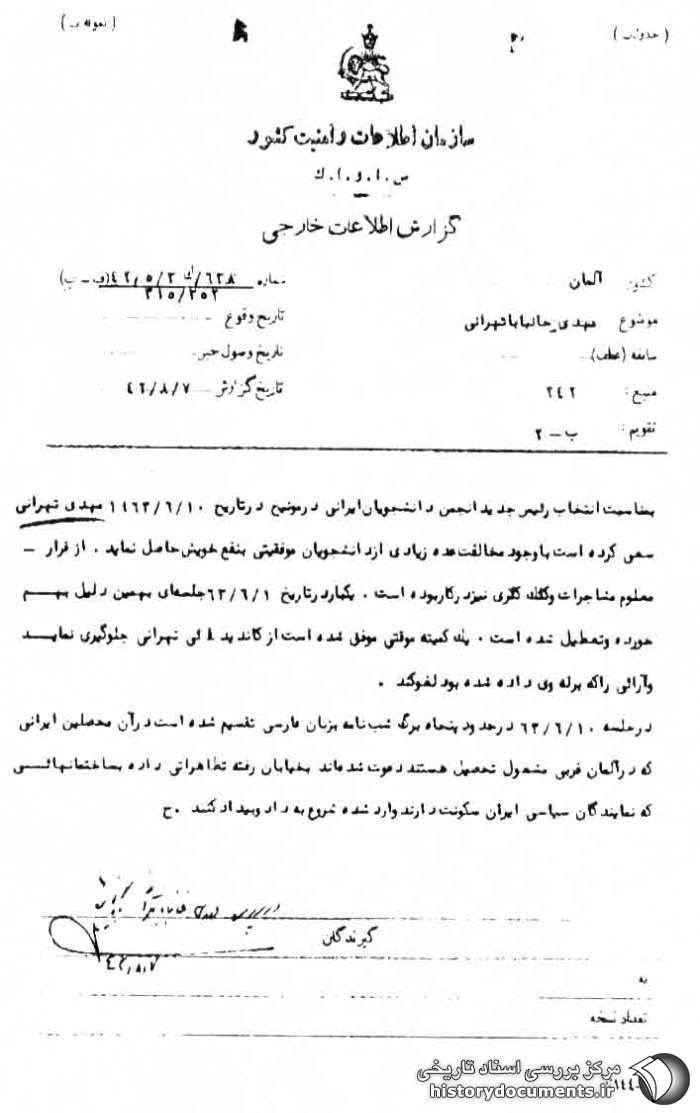 سازمان اطلاعات و امنیت کشور
س . ا . و . ا . ك
گزارش اطلاعات خارجی
کشور آلمان
شماره
۳۱۵/۲۵۲
موضوع مهدی خانبابا تهرانی
تاریخ وقوع
سابقه (عطف)
تاریخ وصول خبر
منبع : ۲٤۲
تاریخ گزارش ٤۲/۸/۷
تقویم : ب - ۲
بمناسبت انتخاب رئیس جدید انجمن دانشجویان ایرانی در مونیخ در تاریخ ۱۹٦۳/٦/۱۰ مهدی تهرانی
سعی کرده است با وجود مخالفت عده زیادی از دانشجویان موفقیتی بنفع خویش حاصل نماید . از قرار -
معلوم مشاجرات و کتك کاری نیز در کار بوده است . یکبار در تاریخ ٦۳/٦/۱ جلسه‌ای بهمین دلیل بهم
خورده و تعطیل شده است . یك کمیته موقتی موفق شده است از کاندید ائی تهرانی جلوگیری نماید
و آرائی را که برله وی داده شده بود لغو کند .
در جلسه ٦۳/٦/۱۰ در حدود پنجاه برگ شب نامه بزبان فارسی تقسیم شده است در آن محصلین ایرانی
که در آلمان غربی مشغول تحصیل هستند دعوت شده‌اند بخیابان رفته تظاهراتی داده بساختمانهائی
که نمایندگان سیاسی ایران سکونت دارند وارد شده شروع به داد و بیداد کنند . ح
گیرندگان
٤۲٫۸٫۷
به
تعداد نسخه
مرکز بررسی اسناد تاریخی
historydocuments.ir